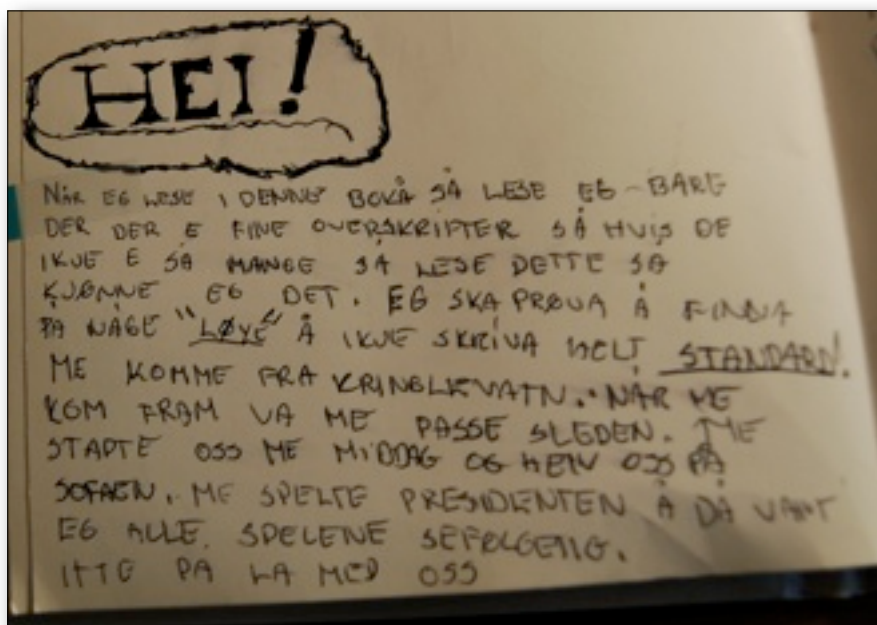 HEI!
NÅR EG LESE I DENNE BOKÅ SÅ LESE EG BARE
DER DER E FINE OVERSKRIFTER SÅ HVIS DE
IKJE E SÅ MANGE SÅ LESE DETTE SÅ
KJØNNE EG DET. EG SKA PRØVA Å FINNA
PÅ NÅGE "LØYE" Å IKJE SKRIVA HELT STANDARN!
ME KOMME FRA KRINGLEVATN. NÅR ME
KOM FRAM VA ME PASSE SLEDEN. ME
STAPTE OSS ME MIDDAG OG HEIV OSS PÅ
SOFAEN. ME SPELTE PRESIDENTEN Å DÅ VANT
EG ALLE SPELENE SEFØLGELIG.
ITTE PÅ LA MED OSS